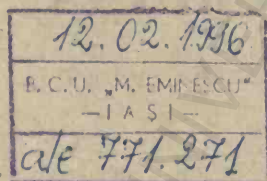 12.02.1996
B. C. U. „M. EMINESCU"
— I A Ș I —
ale 771.271